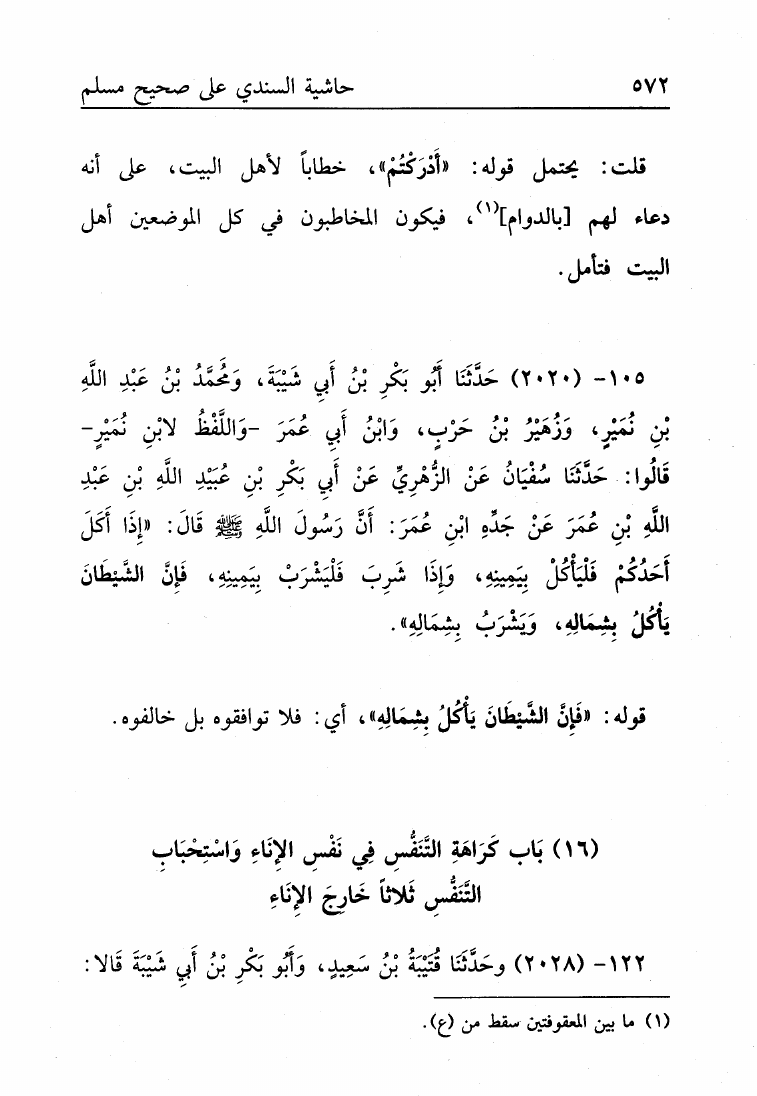 ٥٧٢ حاشية السندي على صحيح مسلم
قلت: يحتمل قوله: «أَدْرَكْتُمْ»، خطاباً لأهل البيت، على أنه
دعاء لهم [بالدوام](١)، فيكون المخاطبون في كل الموضعين أهل
البيت فتأمل.
١٠٥- (٢٠٢٠) حَدَّثَنَا أَبُو بَكْرِ بْنُ أَبِي شَيْبَةَ، وَمُحَمَّدُ بْنُ عَبْدِ اللَّهِ
بْنِ نُمَيْرٍ، وَزُهَيْرُ بْنُ حَرْبٍ، وَابْنُ أَبِي عُمَرَ -وَاللَّفْظُ لابْنِ نُمَيْرٍ-
قَالُوا: حَدَّثَنَا سُفْيَانُ عَنْ الزُّهْرِيِّ عَنْ أَبِي بَكْرِ بْنِ عُبَيْدِ اللَّهِ بْنِ عَبْدِ
اللَّهِ بْنِ عُمَرَ عَنْ جَدِّهِ ابْنِ عُمَرَ: أَنَّ رَسُولَ اللَّهِ ﷺ قَالَ: «إِذَا أَكَلَ
أَحَدُكُمْ فَلْيَأْكُلْ بِيَمِينِهِ، وَإِذَا شَرِبَ فَلْيَشْرَبْ بِيَمِينِهِ، فَإِنَّ الشَّيْطَانَ
يَأْكُلُ بِشِمَالِهِ، وَيَشْرَبُ بِشِمَالِهِ».
قوله: «فَإِنَّ الشَّيْطَانَ يَأْكُلُ بِشِمَالِهِ»، أي: فلا توافقوه بل خالفوه.
(١٦) بَاب كَرَاهَةِ التَّنَفُّسِ فِي نَفْسِ الإِنَاءِ وَاسْتِحْبَابِ
التَّنَفُّسِ ثَلاثاً خَارِجَ الإِنَاءِ
١٢٢- (٢٠٢٨) وحَدَّثَنَا قُتَيْبَةُ بْنُ سَعِيدٍ، وَأَبُو بَكْرِ بْنُ أَبِي شَيْبَةَ قَالا:
(١) ما بين المعقوفتين سقط من (ع).